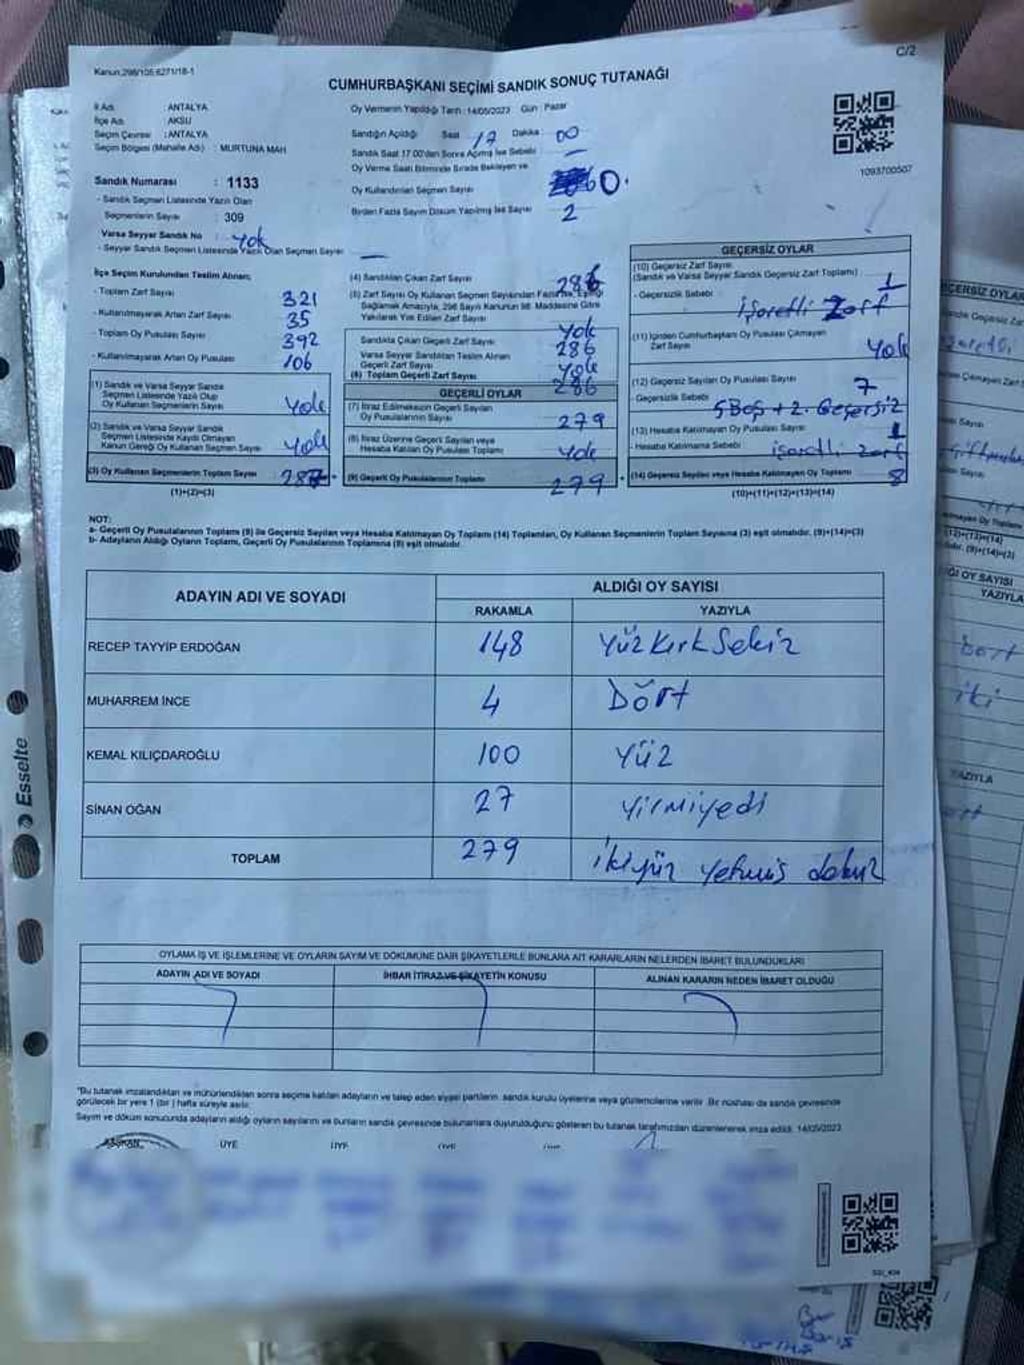 Kanun:298/105:6271/18-1
C/2
CUMHURBAŞKANI SEÇİMİ SANDIK SONUÇ TUTANAĞI
İl Adı : ANTALYA
İlçe Adı : AKSU
Seçim Çevresi : ANTALYA
Seçim Bölgesi (Mahalle Adı) : MURTUNA MAH.
Oy Vermenin Yapıldığı Tarih :14/05/2023 Gün : Pazar
Sandığın Açıldığı Saat 17 Dakika : 00
Sandık Saat 17:00'den Sonra Açılmış İse Sebebi : —
Oy Verme Saati Bitiminde Sırada Bekleyen ve
Oy Kullandırılan Seçmen Sayısı 0
Birden Fazla Sayım Döküm Yapılmış İse Sayısı 2
1093700507
Sandık Numarası : 1133
- Sandık Seçmen Listesinde Yazılı Olan
Seçmenlerin Sayısı : 309
Varsa Seyyar Sandık No : Yok
- Seyyar Sandık Seçmen Listesinde Yazılı Olan Seçmen Sayısı : —
İlçe Seçim Kurulundan Teslim Alınan;
- Toplam Zarf Sayısı 321
- Kullanılmayarak Artan Zarf Sayısı 35
- Toplam Oy Pusulası Sayısı 392
- Kullanılmayarak Artan Oy Pusulası 106
(1) Sandık ve Varsa Seyyar Sandık
Seçmen Listesinde Yazılı Olup
Oy Kullanan Seçmenlerin Sayısı Yok
(2) Sandık ve Varsa Seyyar Sandık
Seçmen Listesinde Kayıtlı Olmayan
Kanun Gereği Oy Kullanan Seçmen Sayısı Yok
(3) Oy Kullanan Seçmenlerin Toplam Sayısı 287
(1)+(2)=(3)
(4) Sandıktan Çıkan Zarf Sayısı 286
(5) Zarf Sayısı Oy Kullanan Seçmen Sayısından Fazla İse, Eşitliği
Sağlamak Amacıyla, 298 Sayılı Kanunun 98. Maddesine Göre
Yakılarak Yok Edilen Zarf Sayısı Yok
Sandıkta Çıkan Geçerli Zarf Sayısı 286
Varsa Seyyar Sandıktan Teslim Alınan
Geçerli Zarf Sayısı Yok
(6) Toplam Geçerli Zarf Sayısı 286
GEÇERLİ OYLAR
(7) İtiraz Edilmeksizin Geçerli Sayılan
Oy Pusulalarının Sayısı 279
(8) İtiraz Üzerine Geçerli Sayılan veya
Hesaba Katılan Oy Pusulası Toplamı Yok
(9) Geçerli Oy Pusulalarının Toplamı 279
GEÇERSİZ OYLAR
(10) Geçersiz Zarf Sayısı
(Sandık ve Varsa Seyyar Sandık Geçersiz Zarf Toplamı) 1
- Geçersizlik Sebebi : işaretli Zarf
(11) İçinden Cumhurbaşkanı Oy Pusulası Çıkmayan
Zarf Sayısı Yok
(12) Geçersiz Sayılan Oy Pusulası Sayısı 7
- Geçersizlik Sebebi : 5 Boş + 2. Geçersiz
(13) Hesaba Katılmayan Oy Pusulası Sayısı 1
- Hesaba Katılmama Sebebi : işaretli zarf
(14) Geçersiz Sayılan veya Hesaba Katılmayan Oy Toplamı 8
(10)+(11)+(12)+(13)=(14)
NOT:
a- Geçerli Oy Pusulalarının Toplamı (9) ile Geçersiz Sayılan veya Hesaba Katılmayan Oy Toplamı (14) Toplamları, Oy Kullanan Seçmenlerin Toplam Sayısına (3) eşit olmalıdır. (9)+(14)=(3)
b- Adayların Aldığı Oyların Toplamı, Geçerli Oy Pusulalarının Toplamına (9) eşit olmalıdır.
ADAYIN ADI VE SOYADI ALDIĞI OY SAYISI
RAKAMLA YAZIYLA
RECEP TAYYİP ERDOĞAN 148 Yüz Kırk Sekiz
MUHARREM İNCE 4 Dört
KEMAL KILIÇDAROĞLU 100 Yüz
SİNAN OĞAN 27 Yirmiyedi
TOPLAM 279 ikiyüz yetmiş dokuz
OYLAMA İŞ VE İŞLEMLERİNE VE OYLARIN SAYIM VE DÖKÜMÜNE DAİR ŞİKAYETLERLE BUNLARA AİT KARARLARIN NELERDEN İBARET BULUNDUKLARI
ADAYIN ADI VE SOYADI İHBAR İTİRAZ VE ŞİKAYETİN KONUSU ALINAN KARARIN NEDEN İBARET OLDUĞU
*Bu tutanak imzalandıktan ve mühürlendikten sonra seçime katılan adayların ve talep eden siyasi partilerin, sandık kurulu üyelerine veya gözlemcilerine verilir. Bir nüshası da sandık çevresinde
görülecek bir yere 1 (bir) hafta süreyle asılır.
Sayım ve döküm sonucunda adayların aldığı oyların sayılarını ve bunların sandık çevresinde bulunanlara duyurulduğunu gösteren bu tutanak tarafımızdan düzenlenerek imza edildi. 14/05/2023
BAŞKAN ÜYE ÜYE ÜYE ÜYE
Esselte
YAZIYLA
iki
YAZIYLA